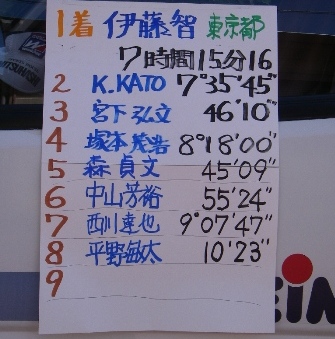 1着 伊藤智 東京都
7時間15分16
2 K.KATO 7°35'45"
3 宮下弘文 46'10"
4 塚本茂浩 8°18'00"
5 森貞文 45'09"
6 中山芳裕 55'24"
7 西川達也 9°07'47"
8 平野敏太 10'23"
9